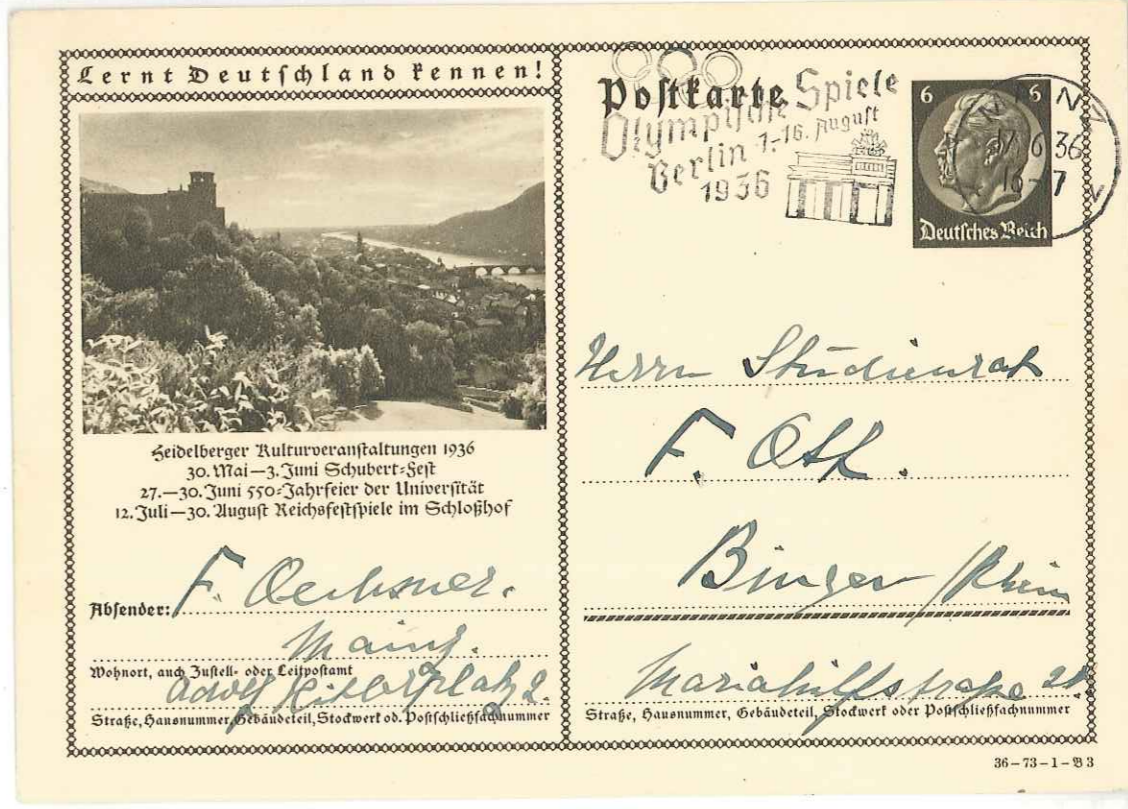 Lernt Deutschland kennen!
Heidelberger Kulturveranstaltungen 1936
30. Mai—3. Juni Schubert=Fest
27.—30. Juni 550=Jahrfeier der Universität
12. Juli—30. August Reichsfestspiele im Schloßhof
Absender: F. Oechsner.
Mainz.
Wohnort, auch Zustell- oder Leitpostamt
Adolf Hitlerplatz 2.
Straße, Hausnummer, Gebäudeteil, Stockwerk od. Postschließfachnummer
Postkarte
Olympische Spiele
Berlin 1.-16. August
1936
6 6
Deutsches Reich
MAINZ
17.6.36
16-17
Herrn Studienrat
F. Oth.
Bingen /Rhein
Mariahilfsstraße
Straße, Hausnummer, Gebäudeteil, Stockwerk oder Postschließfachnummer
36–73–1–B 3